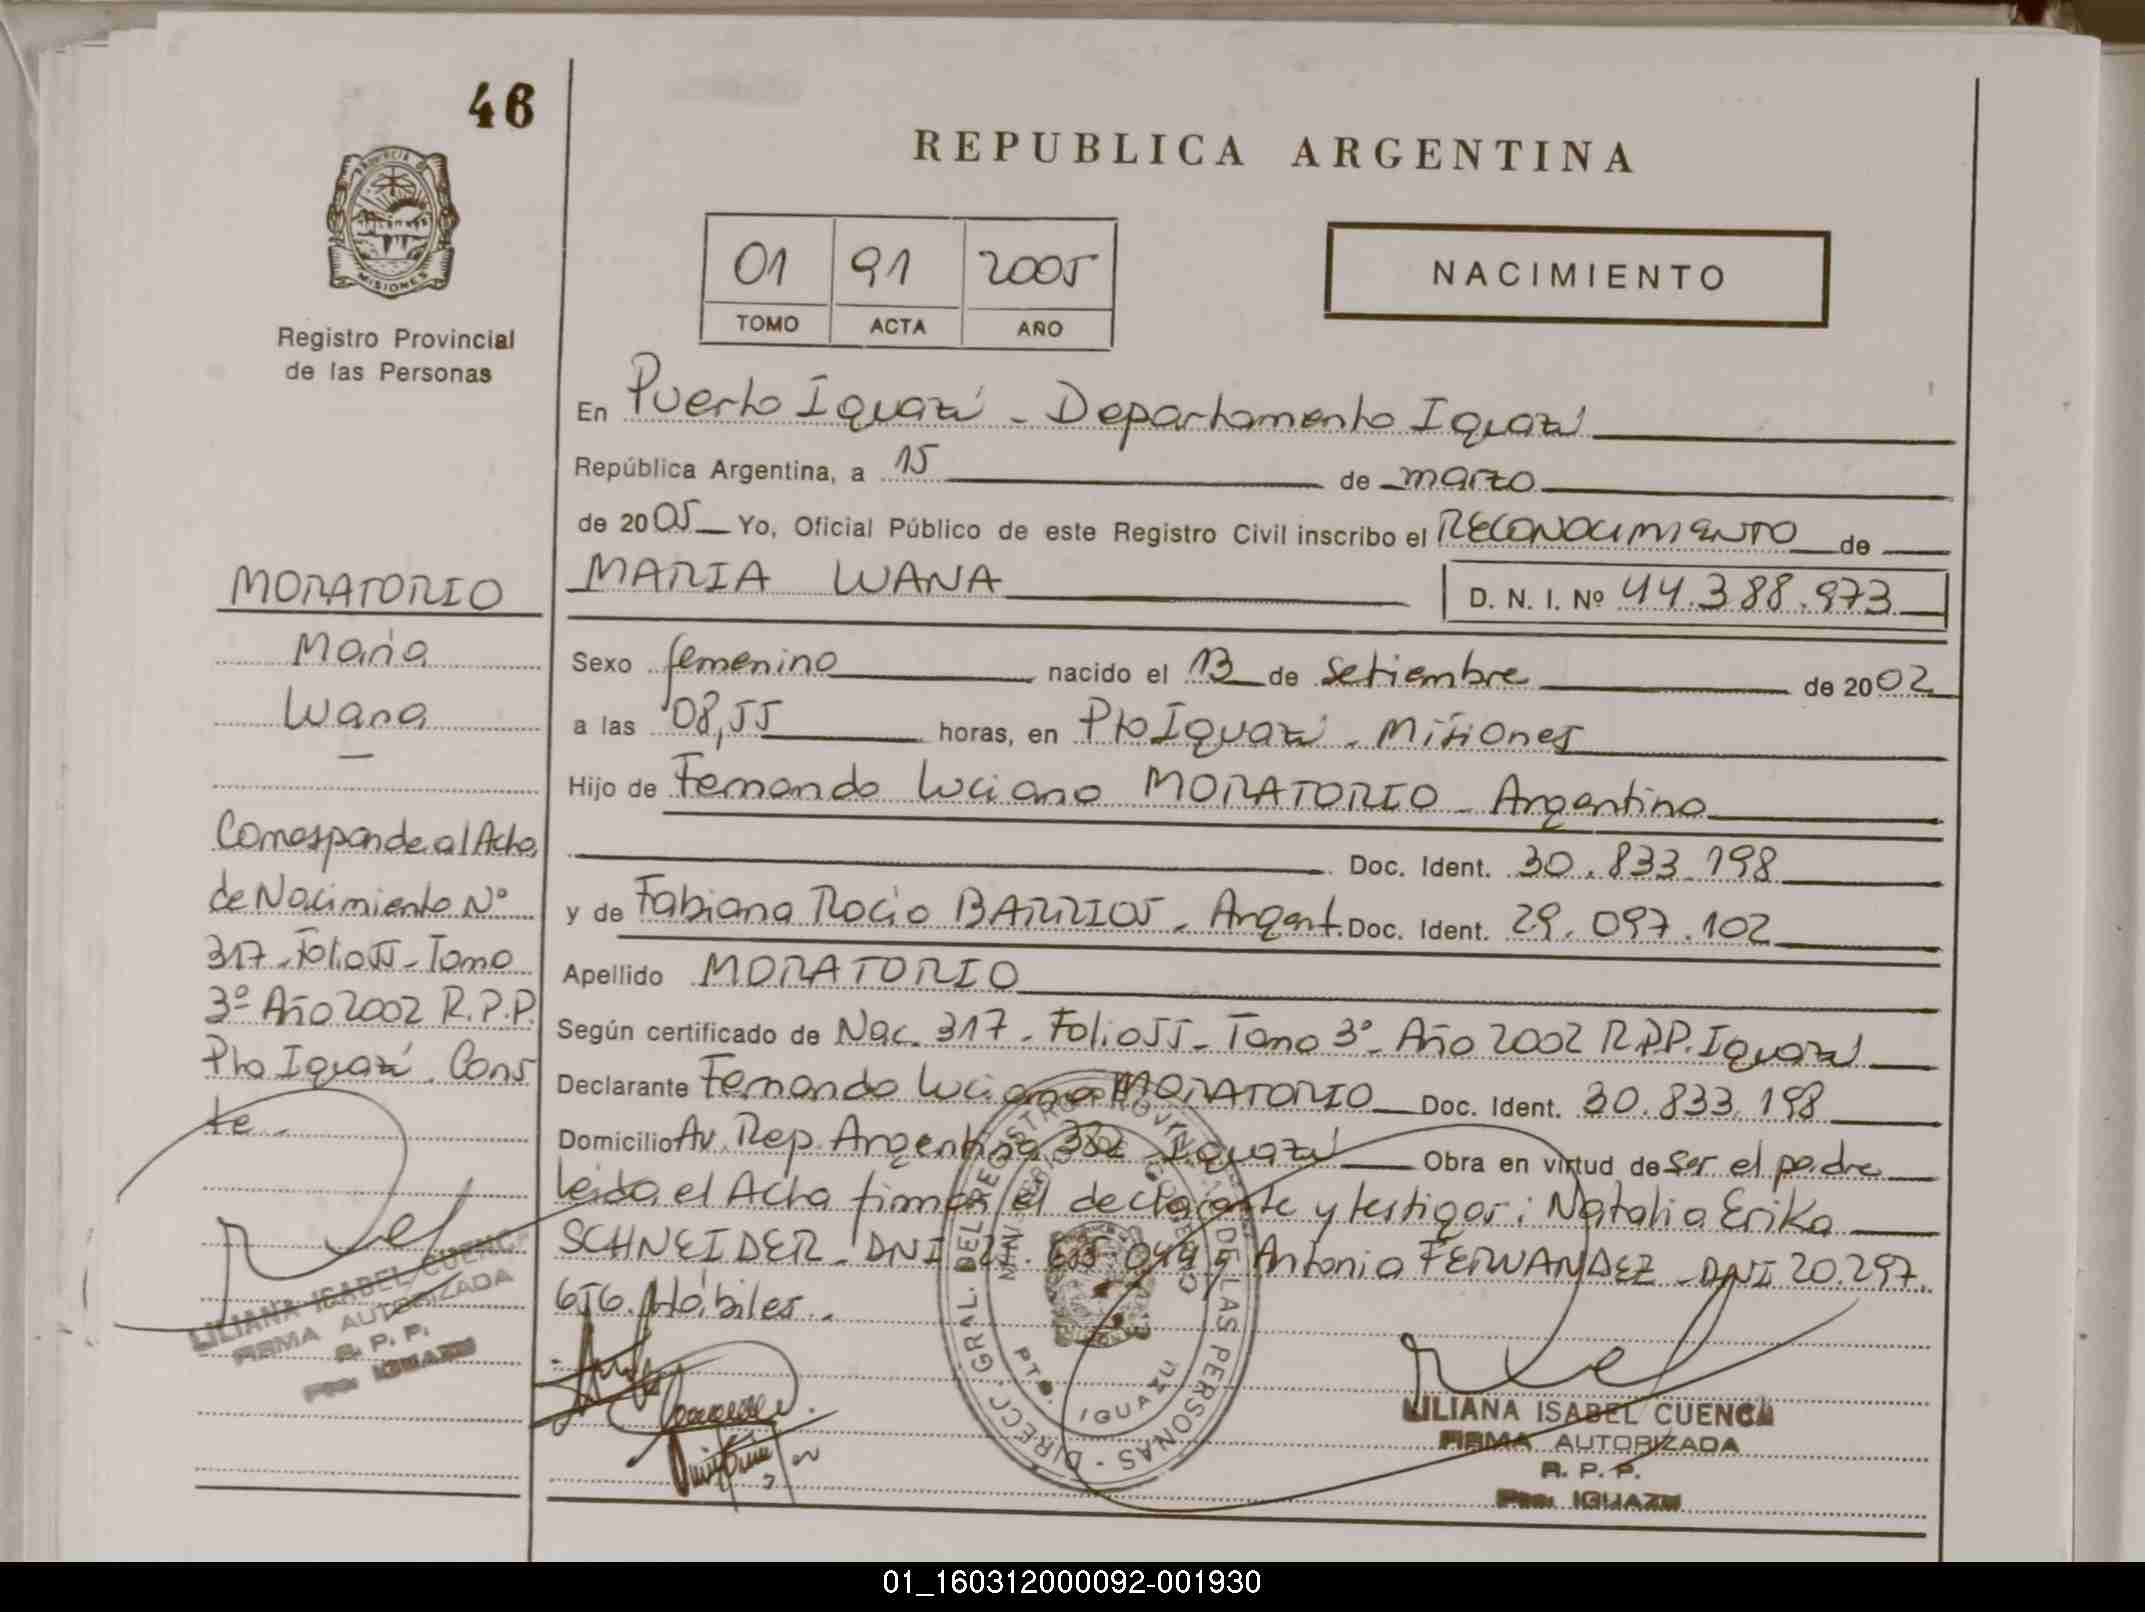 46
REPUBLICA ARGENTINA
MISIONES
Registro Provincial
de las Personas
01 91 2005
TOMO ACTA AÑO
NACIMIENTO
En Puerto Iguazú - Departamento Iguazú
República Argentina, a 15 de marzo
de 2005 Yo, Oficial Público de este Registro Civil inscribo el RECONOCIMIENTO de
MARIA LUANA D. N. I. Nº 44.388.973
Sexo femenino nacido el 13 de setiembre de 2002
a las 08,55 horas, en Pto Iguazú - Misiones
Hijo de Fernando Luciano MORATORIO - Argentino
Doc. Ident. 30.833.198
y de Fabiana Rocio BARRIOS - Argent. Doc. Ident. 29.097.102
Apellido MORATORIO
Según certificado de Nac. 317 - Folio 55 - Tomo 3º - Año 2002 R.P.P. Iguazú
Declarante Fernando Luciano MORATORIO Doc. Ident. 30.833.198
Domicilio Av. Rep. Argentina 332 Iguazú Obra en virtud de ser el padre
leída el Acta firman el declarante y testigos: Natalia Erika
SCHNEIDER - DNI Antonia FERNANDEZ - DNI 20.297.
656. Hábiles.-
MORATORIO
Maria
Luana
Corresponde al Acta
de Nacimiento Nº
317 - Folio 55 - Tomo
3º Año 2002 R.P.P.
Pto Iguazú. Cons
te.-
LILIANA ISABEL CUENCA
FIRMA AUTORIZADA
R. P. P.
Pto. IGUAZU
DIRECC. GRAL. DEL REGISTRO PROVINCIAL DE LAS PERSONAS
PTO. IGUAZU
LILIANA ISABEL CUENCA
FIRMA AUTORIZADA
R. P. P.
Pto. IGUAZU
01_160312000092-001930